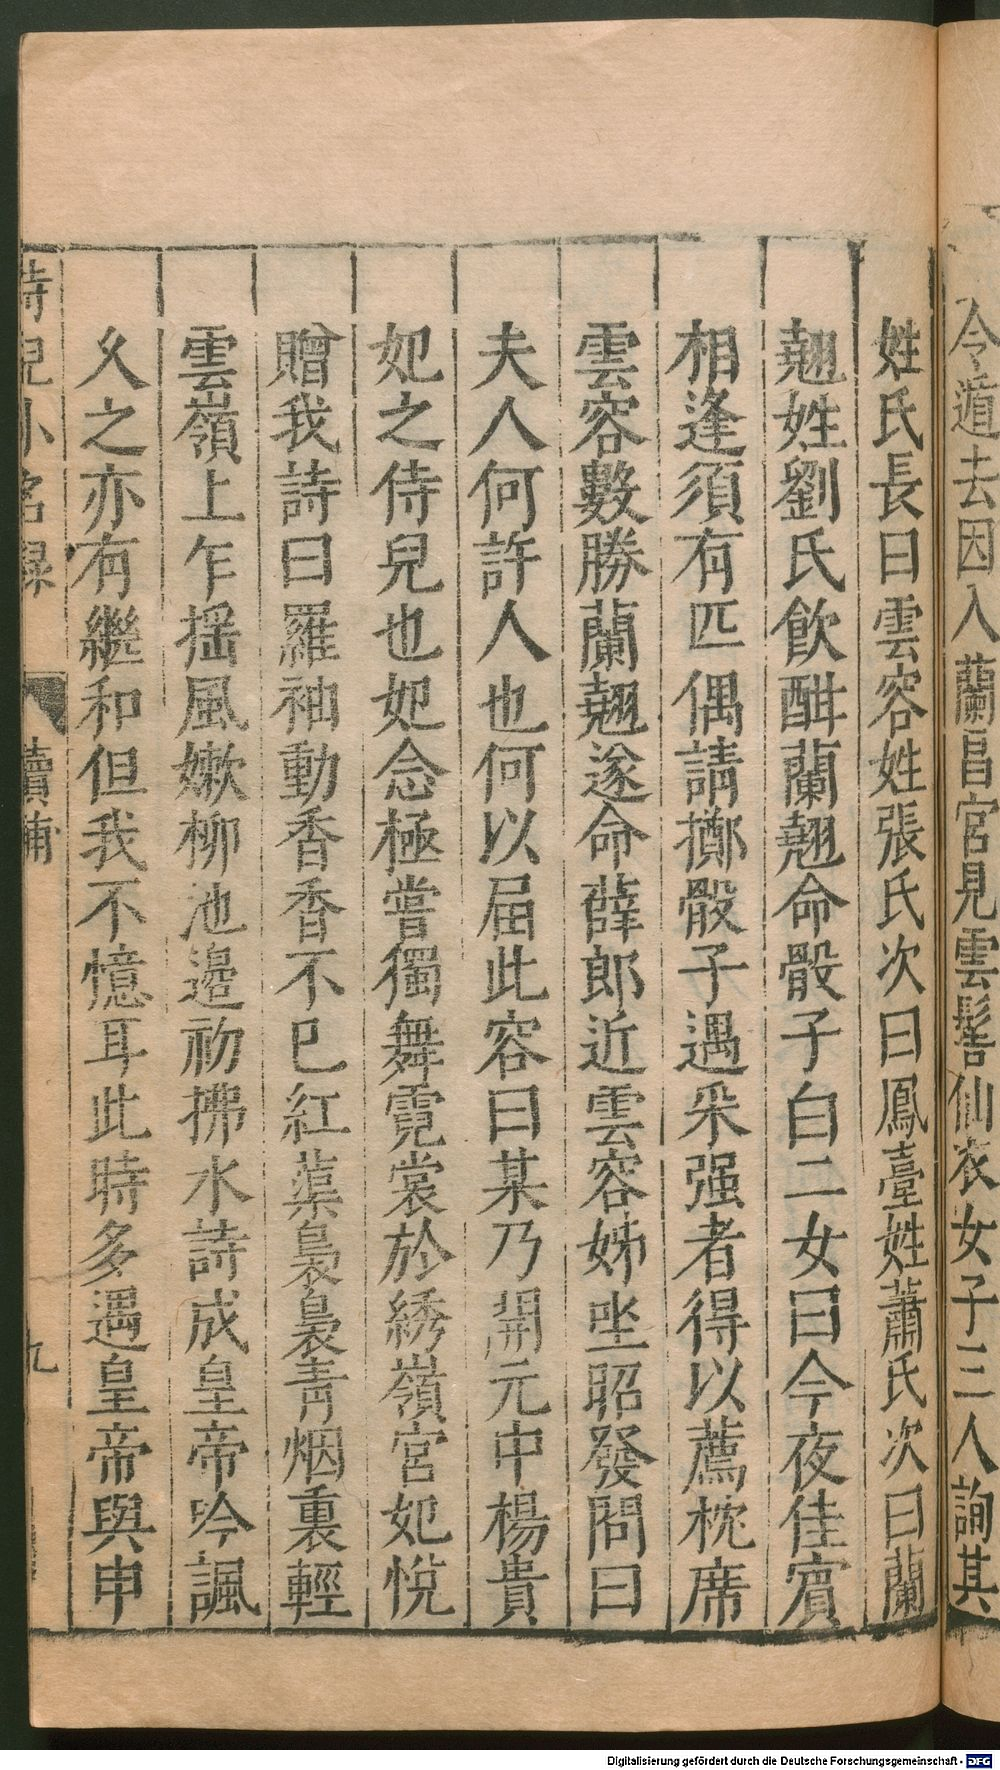 令遁去因入蘭昌宮見雲髻仙衣女子三人詢其
姓氏長曰雲容姓張氏次曰鳳臺姓蕭氏次曰蘭
翹姓劉氏飲酣蘭翹命骰子白二女曰今夜佳賓
相逢須有匹偶請擲骰子遇采强者得以薦枕席
雲容數勝蘭翹遂命薛郎近雲容姊坐昭發問曰
夫人何許人也何以届此容曰某乃開元中楊貴
妃之侍兒也妃念極嘗獨舞霓裳於綉嶺宮妃悅
贈我詩曰羅袖動香香不已紅蕖裊裊青烟裏輕
雲嶺上乍摇風嫩柳池邊初拂水詩成皇帝吟諷
久之亦有繼和但我不憶耳此時多遇皇帝與申
侍兒小名録 續補 九
Digitalisierung gefördert durch die Deutsche Forschungsgemeinschaft - DFG